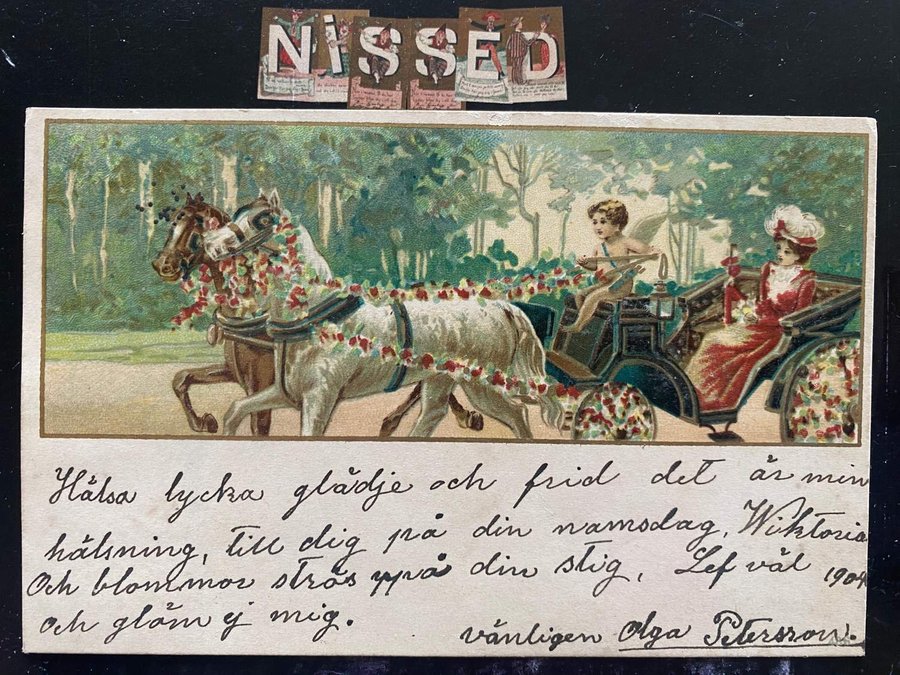 NiSSED
Hälsa lycka glädje och frid det är min
hälsning, till dig på din namsdag, Wiktoria
Och blommor strös uppå din stig, Lef väl 1904
och glöm ej mig.
vänligen Olga Petersson.